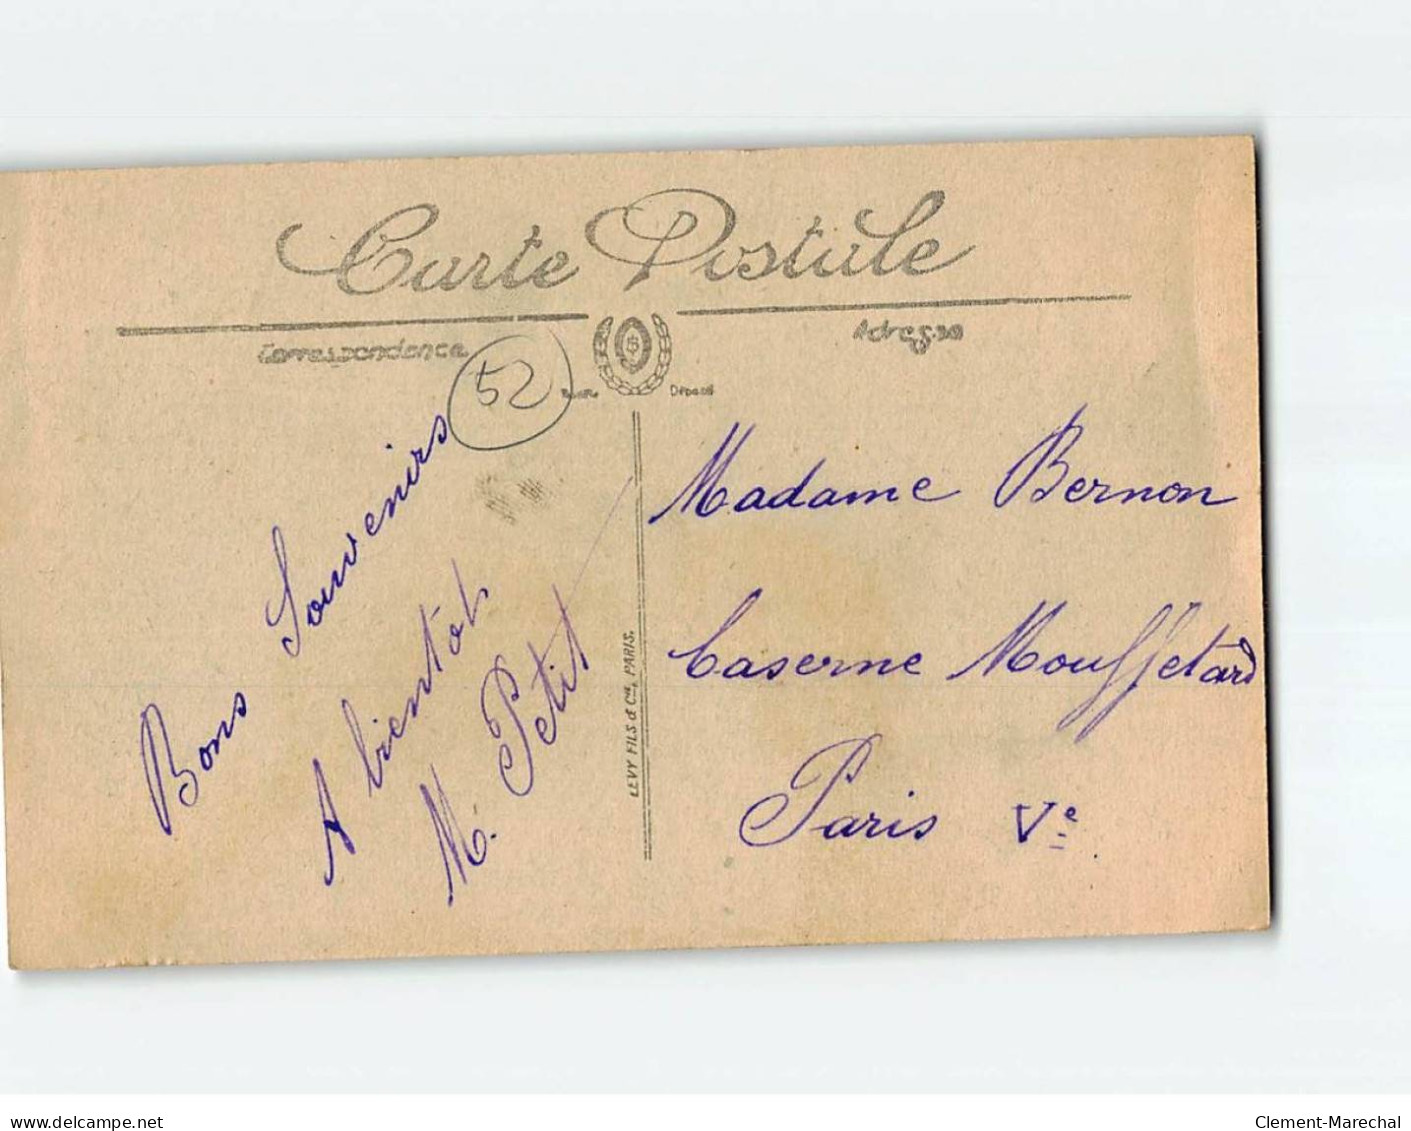 Carte Postale
Correspondance
Adresse
52
Déposé
Bons Souvenirs
A bientôt
M. Petit
LEVY FILS & Cie, PARIS.
Madame Bernon
Caserne Mouffetard
Paris Ve
www.delcampe.net
Clement-Marechal